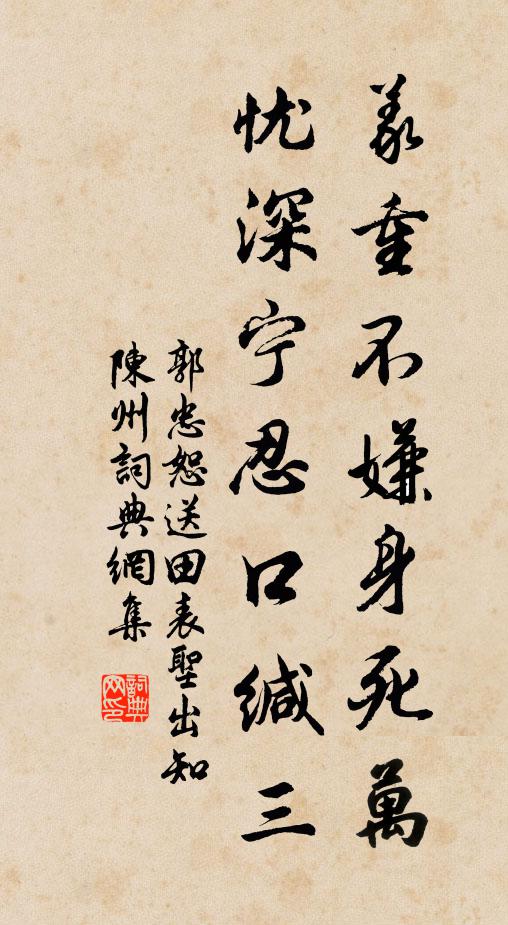 义重不嫌身死萬
忧深宁忍口缄三
郭忠恕送田表聖出知
陳州詞典網集
詞典
网印